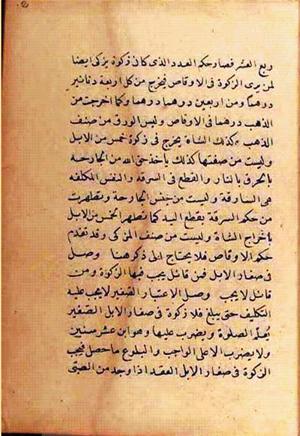 ربع العشر فصار حكم العدد الذي كان زكوة يزكى ايضا
لمن يرى الزكوة في الاوقاص فيخرج من كل اربعة دنانير
درهما ومن اربعين درهما درهما وكما اخرجت من
الذهب درهما في الاوقاص وليس الورق من صنف
الذهب كذلك الشاة يخرج في زكوة خمس من الابل
وليست من صنفها كذلك يأخذ حق الله من الجارحة
بالحرق بالنار والقطع في السرقة والنفس المكلفة
هي السارقة وليست من جنس الجارحة وتطهرت
من حكم السرقة بقطع اليد كما تطهر الخمس من الابل
باخراج الشاة وليست من صنف المزكى وقد تقدم
حكم الاوقاص فلا يحتاج الى ذكرهنا وصل
في صغار الابل فمن قائل يجب فيها الزكوة ومن
قائل لا يجب وصل الاعتبار الصغير لا يجب عليه
التكليف حتى يبلغ فلا زكوة في صغار الابل الصغير
يعلم الصلوة ويضرب عليها وهو ابن عشر سنين
ولا يضرب الا على الواجب والبلوغ ما حصل فيجب
الزكوة في صغار الابل العقد اذا وجد من الصبى